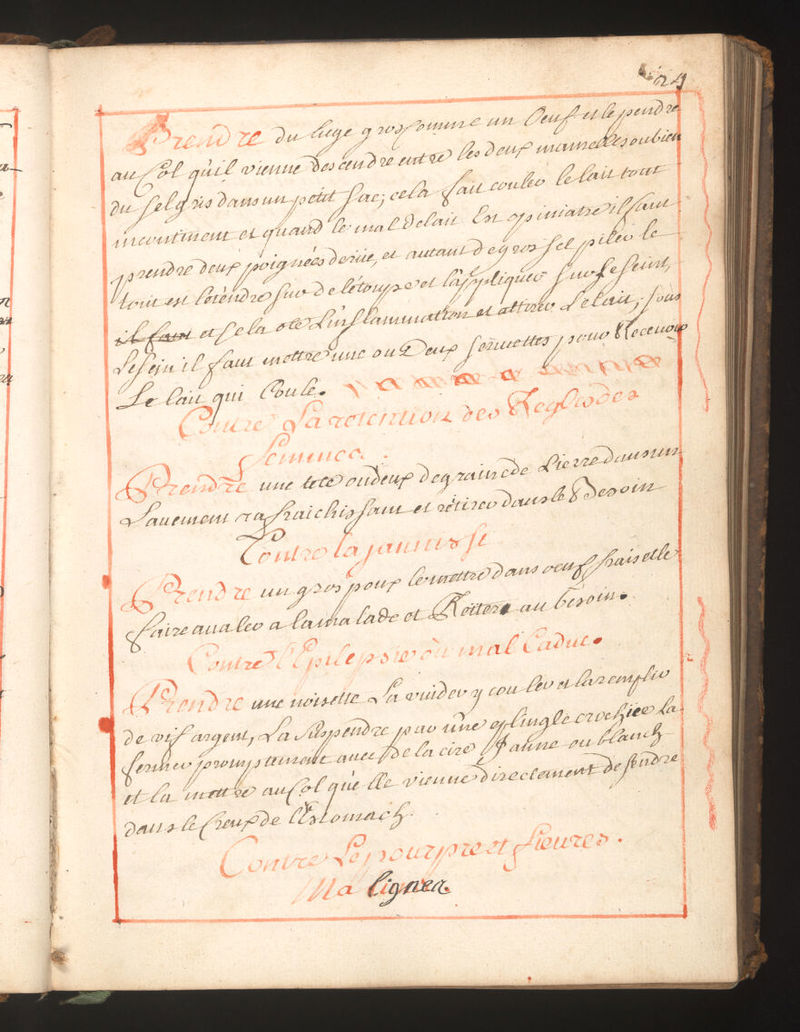 24
Prendre du liege gros comme un Oeuf et le pendre
au Col qu'il vienne descendre entre les deux mamelles ou bien
du sel gris dans un petit sac; cela fait couler le lait tout
incontinent et quand le mal de lait Est opiniatre il faut
prendre deux poignées de rüe, et autant de gros sel piler le
tout et l'etendre sur de l'étouppe et l'appliquer sur le seint,
il faut et cela ote l'inflammation et attire Le lait; sous
Le sein il faut mettre une ou Deux serviettes pour Recevoir
Le lait qui Coule.
Contre La retention des Regles des
femmes.
Prendre une tete ou deux de grains de Lierre dans un
Lavement rafraichissant et réitirer dans le Besoin
Contre la jaunisse
Prendre un gros poux le mettre dans oeuf frais et le
faire avaler a la malade et Reiterer au besoin.
Contre l'Epilepsie ou mal Caduc.
Prendre une noisette La vuider y couler et la remplir
de vif argent, La suspendre par une eplingle crochiee La
fermer promptement avec de la cire Jaune ou blanch
et la mettre au Col qu'elle vienne directement desendre
dans le Creux de l'Estomach.
Contre Le pourpre et fievres.
Malignes.